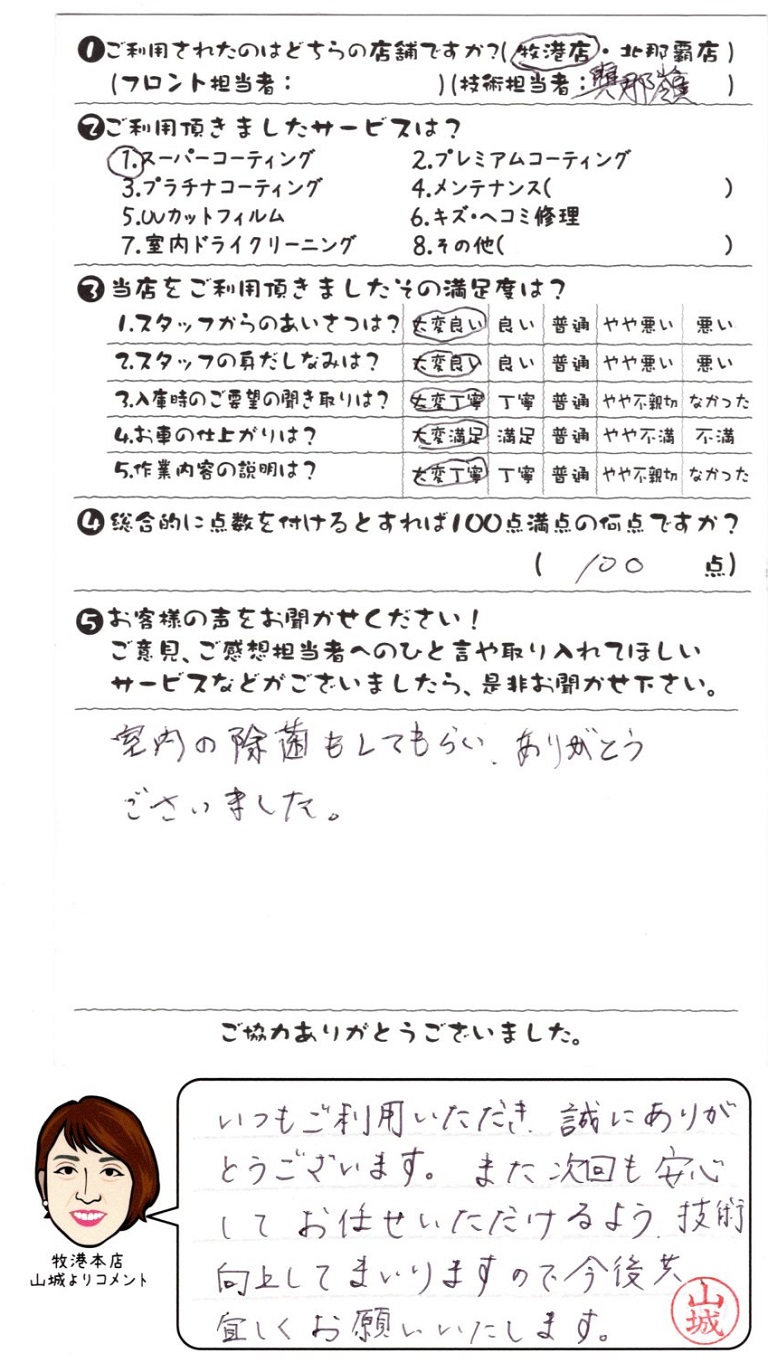 ❶ご利用されたのはどちらの店舗ですか?(牧港店・北那覇店)
(フロント担当者: )(技術担当者:與那嶺 )
❷ご利用頂きましたサービスは?
1.スーパーコーティング 2.プレミアムコーティング
3.プラチナコーティング 4.メンテナンス( )
5.UVカットフィルム 6.キズ・ヘコミ修理
7.室内ドライクリーニング 8.その他( )
❸当店をご利用頂きましたその満足度は?
1.スタッフからのあいさつは? 大変良い 良い 普通 やや悪い 悪い
2.スタッフの身だしなみは? 大変良い 良い 普通 やや悪い 悪い
3.入庫時のご要望の聞き取りは? 大変丁寧 丁寧 普通 やや不親切 なかった
4.お車の仕上がりは? 大変満足 満足 普通 やや不満 不満
5.作業内容の説明は? 大変丁寧 丁寧 普通 やや不親切 なかった
❹総合的に点数を付けるとすれば100点満点の何点ですか?
( 100 点)
❺お客様の声をお聞かせください!
ご意見、ご感想担当者へのひと言や取り入れてほしい
サービスなどがございましたら、是非お聞かせ下さい。
室内の除菌もしてもらい、ありがとう
ございました。
ご協力ありがとうございました。
いつもご利用いただき、誠にありが
とうございます。また次回も安心
してお任せいただけるよう、技術
向上してまいりますので今後共
宜しくお願いいたします。
山城
牧港本店
山城よりコメント